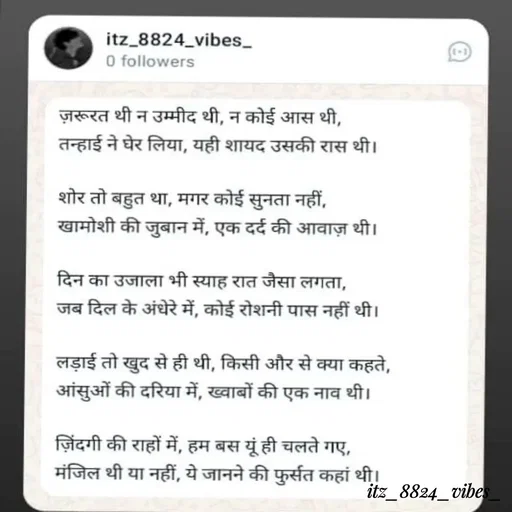 itz_8824_vibes_
0 followers
ज़रूरत थी न उम्मीद थी, न कोई आस थी,
तन्हाई ने घेर लिया, यही शायद उसकी रास थी।
शोर तो बहुत था, मगर कोई सुनता नहीं,
खामोशी की जुबान में, एक दर्द की आवाज़ थी।
दिन का उजाला भी स्याह रात जैसा लगता,
जब दिल के अंधेरे में, कोई रोशनी पास नहीं थी।
लड़ाई तो खुद से ही थी, किसी और से क्या कहते,
आंसुओं की दरिया में, ख्वाबों की एक नाव थी।
ज़िंदगी की राहों में, हम बस यूं ही चलते गए,
मंजिल थी या नहीं, ये जानने की फुर्सत कहां थी।
itz_8824_vibes_